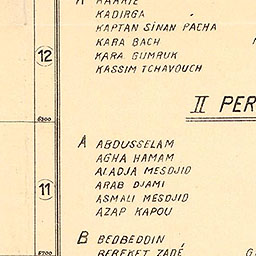 KADIRGA
KAPTAN SİNAN PACHA
KARA BACH
12
KARA GUMRUK
KASSIM TCHAVOUCH
II PER
A ABOUSSELAM
AGHA HAMAM
ALADJA MESDJID
11
ARAB DJAMI
ASMALI MESDJID
AZAP KAPOU
B BEDBEDDIN
BEREKET ZADÉ